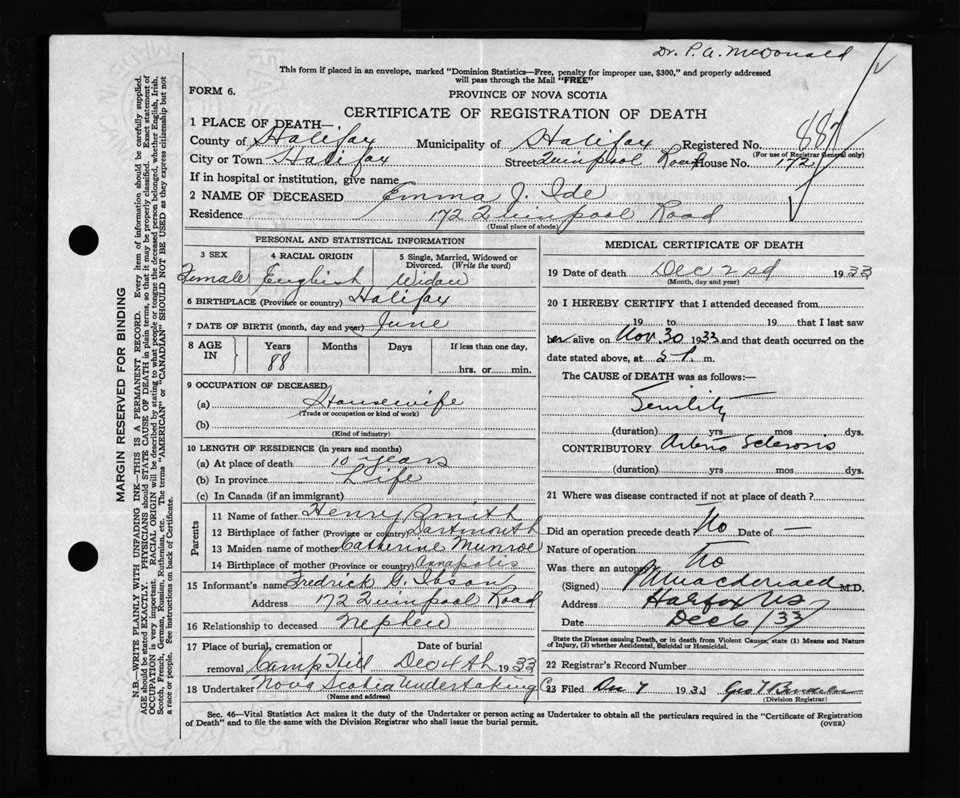 Dr. P. A. McDonald
This form if placed in an envelope, marked "Dominion Statistics—Free, penalty for improper use, $300," and properly addressed
will pass through the Mail "FREE"
FORM 6.
PROVINCE OF NOVA SCOTIA
CERTIFICATE OF REGISTRATION OF DEATH
1 PLACE OF DEATH—
County of Halifax Municipality of Halifax Registered No. 887
(For use of Registrar General only)
City or Town Halifax Street Quinpool Road House No. 172
If in hospital or institution, give name
2 NAME OF DECEASED Emma J. Ide
Residence 172 Quinpool Road
(Usual place of abode)
PERSONAL AND STATISTICAL INFORMATION
3 SEX 4 RACIAL ORIGIN 5 Single, Married, Widowed or Divorced. (Write the word)
Female English Widow
6 BIRTHPLACE (Province or country) Halifax
7 DATE OF BIRTH (month, day and year) June
8 AGE IN Years Months Days If less than one day,
88 hrs. or min.
9 OCCUPATION OF DECEASED
(a) Housewife
(Trade or occupation or kind of work)
(b)
(Kind of industry)
10 LENGTH OF RESIDENCE (in years and months)
(a) At place of death 10 years
(b) In province Life
(c) In Canada (if an immigrant)
Parents
11 Name of father Henry Smith
12 Birthplace of father (Province or country) Dartmouth
13 Maiden name of mother Catherine Munroe
14 Birthplace of mother (Province or country) Annapolis
15 Informant's name Fredrick G. Ibson
Address 172 Quinpool Road
16 Relationship to deceased Nephew
17 Place of burial, cremation or
removal Camp Hill Dec 4th 1933
18 Undertaker Nova Scotia Undertaking Co
(Name and address)
MEDICAL CERTIFICATE OF DEATH
19 Date of death Dec 2nd 1933
(Month, day and year)
20 I HEREBY CERTIFY that I attended deceased from
19 to 19 that I last saw
her alive on Nov. 30 1933 and that death occurred on the
date stated above, at 5 P. m.
The CAUSE of DEATH was as follows:—
Senility
(duration) yrs mos dys.
CONTRIBUTORY Arterio Sclerosis
(duration) yrs mos dys.
21 Where was disease contracted if not at place of death?
Did an operation precede death? No Date of —
Nature of operation
Was there an autopsy No
(Signed) P A Macdonald M.D.
Address Halifax NS
Date Dec 6/33
State the Disease causing Death, or in death from Violent Causes, state (1) Means and Nature
of Injury, (2) whether Accidental, Suicidal or Homicidal.
22 Registrar's Record Number
23 Filed Dec 7 1933 Geo
(Division Registrar)
Sec. 46—Vital Statistics Act makes it the duty of the Undertaker or person acting as Undertaker to obtain all the particulars required in the "Certificate of Registration
of Death" and to file the same with the Division Registrar who shall issue the burial permit.
(OVER)
MARGIN RESERVED FOR BINDING
N.B.—WRITE PLAINLY WITH UNFADING INK—THIS IS A PERMANENT RECORD. Every item of information should be carefully supplied.
AGE should be stated EXACTLY. PHYSICIANS should STATE CAUSE OF DEATH in plain terms, so that it may be properly classified. Exact statement of
OCCUPATION is very important. RACIAL ORIGIN will be described by stating to what people or tongue the deceased person belonged, whether English, Irish,
Scotch, French, German, Russian, Ruthenian, etc. The terms "AMERICAN" or "CANADIAN" SHOULD NOT BE USED as they express citizenship but not
a race or people. See instructions on back of Certificate.